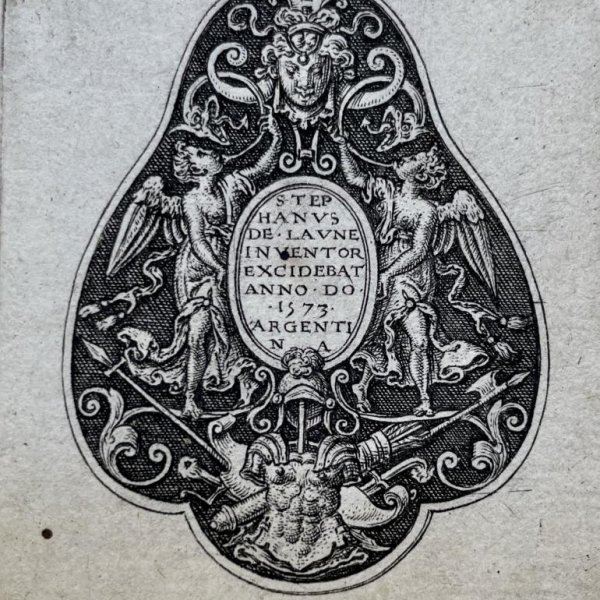 STEP
HANVS
DE·LAVNE
INVENTOR
EXCIDEBAT
ANNO·DO·
·1573·
ARGENTI
N A